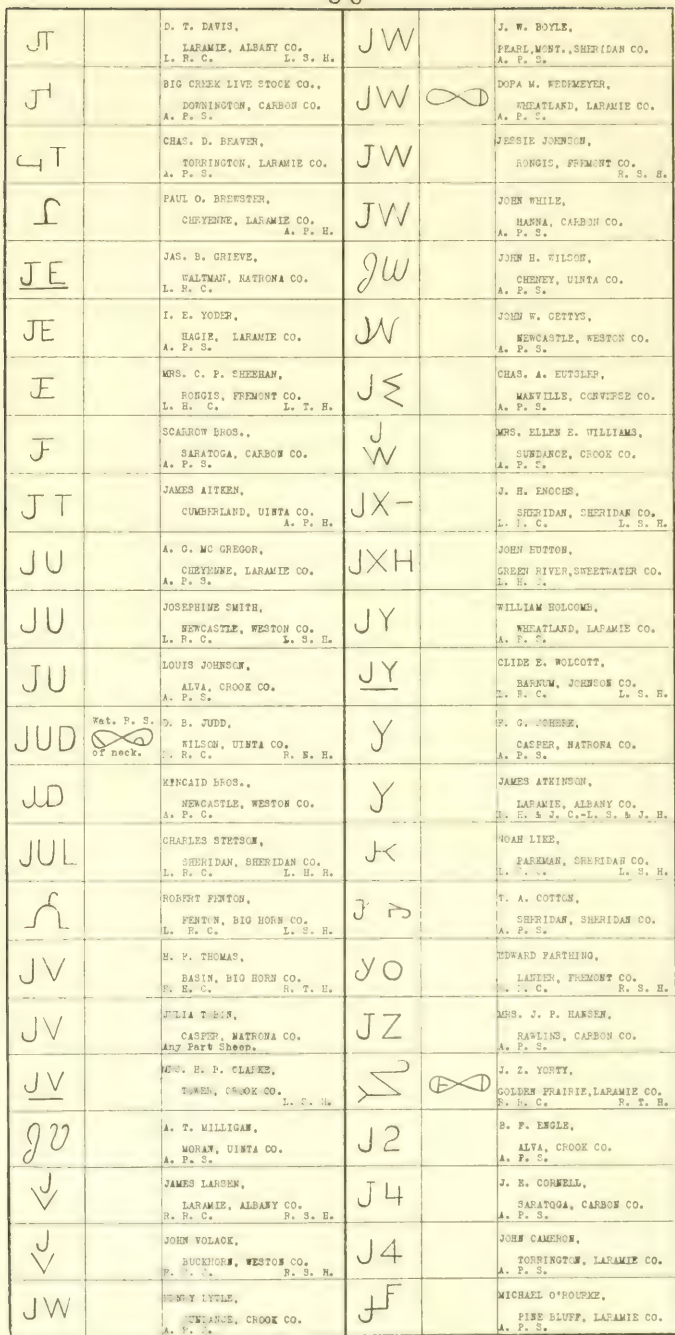 JT
D. T. DAVIS,
LARAMIE, ALBANY CO.
L. R. C. L. S. H.
BIG CREEK LIVE STOCK CO.,
DOWNINGTON, CARBON CO.
A. P. S.
CHAS. D. BEAVER,
TORRINGTON, LARAMIE CO.
A. P. S.
PAUL O. BREWSTER,
CHEYENNE, LARAMIE CO.
A. P. H.
JE
JAS. B. GRIEVE,
WALTMAN, NATRONA CO.
L. R. C.
JE
I. E. YODER,
HAGIE, LARAMIE CO.
A. P. S.
MRS. C. P. SHEEHAN,
RONGIS, FREMONT CO.
L. H. C. L. T. H.
SCARROW BROS.,
SARATOGA, CARBON CO.
A. P. S.
JT
JAMES AITKEN,
CUMBERLAND, UINTA CO.
A. P. H.
JU
A. G. MC GREGOR,
CHEYENNE, LARAMIE CO.
A. P. S.
JU
JOSEPHINE SMITH,
NEWCASTLE, WESTON CO.
L. R. C. L. S. H.
JU
LOUIS JOHNSON,
ALVA, CROOK CO.
A. P. S.
JUD
Wat. R. S.
of neck.
D. B. JUDD,
WILSON, UINTA CO.
R. C. R. N. H.
KINCAID BROS.,
NEWCASTLE, WESTON CO.
A. P. C.
JUL
CHARLES STETSON,
SHERIDAN, SHERIDAN CO.
L. R. C. L. H. H.
ROBERT FENTON,
FENTON, BIG HORN CO.
L. R. C. L. S. H.
JV
H. P. THOMAS,
BASIN, BIG HORN CO.
H. C. R. T. H.
JV
CASPER, NATRONA CO.
Any Part Sheep.
JV
H. P. CLARKE,
TOWER, CROOK CO.
JV
A. T. MILLIGAN,
MORAN, UINTA CO.
A. P. S.
JV
JAMES LARSEN,
LARAMIE, ALBANY CO.
R. R. C. R. S. H.
JV
JOHN VOLACK,
BUCKHORN, WESTON CO.
R. S. H.
JW
LYTLE,
CROOK CO.
A. P. S.
JW
J. W. BOYLE,
PEARL, MONT., SHERIDAN CO.
A. P. S.
JW
DOPA M. WEDEMEYER,
WHEATLAND, LARAMIE CO.
A. P. S.
JW
JESSIE JOHNSON,
RONGIS, FREMONT CO.
R. S. H.
JW
JOHN WHILE,
HANNA, CARBON CO.
A. P. S.
JW
JOHN H. WILSON,
CHENEY, UINTA CO.
A. P. S.
JOHN W. GETTYS,
NEWCASTLE, WESTON CO.
A. P. S.
CHAS. A. EUTSLER,
MANVILLE, CONVERSE CO.
A. P. S.
J
W
MRS. ELLEN E. WILLIAMS,
SUNDANCE, CROOK CO.
A. P. S.
JX-
J. H. ENOCHS,
SHERIDAN, SHERIDAN CO.
L. S. H.
JXH
JOHN HUTTON,
GREEN RIVER, SWEETWATER CO.
L. H.
JY
WILLIAM HOLCOMB,
WHEATLAND, LARAMIE CO.
A. P. S.
JY
CLIDE E. WOLCOTT,
BARNUM, JOHNSON CO.
L. R. C. L. S. H.
CASPER, NATRONA CO.
A. P. S.
JAMES ATKINSON,
LARAMIE, ALBANY CO.
& J. C.-L. S. & J. H.
NOAH LIKE,
PARKMAN, SHERIDAN CO.
L. S. H.
T. A. COTTON,
SHERIDAN, SHERIDAN CO.
A. P. S.
EDWARD FARTHING,
LANDER, FREMONT CO.
R. S. H.
JZ
MRS. J. P. HANSEN,
RAWLINS, CARBON CO.
A. P. S.
J. Z. YORTY,
GOLDEN PRAIRIE, LARAMIE CO.
R. R. C. R. T. H.
J2
B. F. ENGLE,
ALVA, CROOK CO.
A. P. S.
J4
J. E. CORNELL,
SARATOGA, CARBON CO.
A. P. S.
J4
JOHN CAMERON,
TORRINGTON, LARAMIE CO.
A. P. S.
MICHAEL O'ROURKE,
PINE BLUFF, LARAMIE CO.
A. P. S.